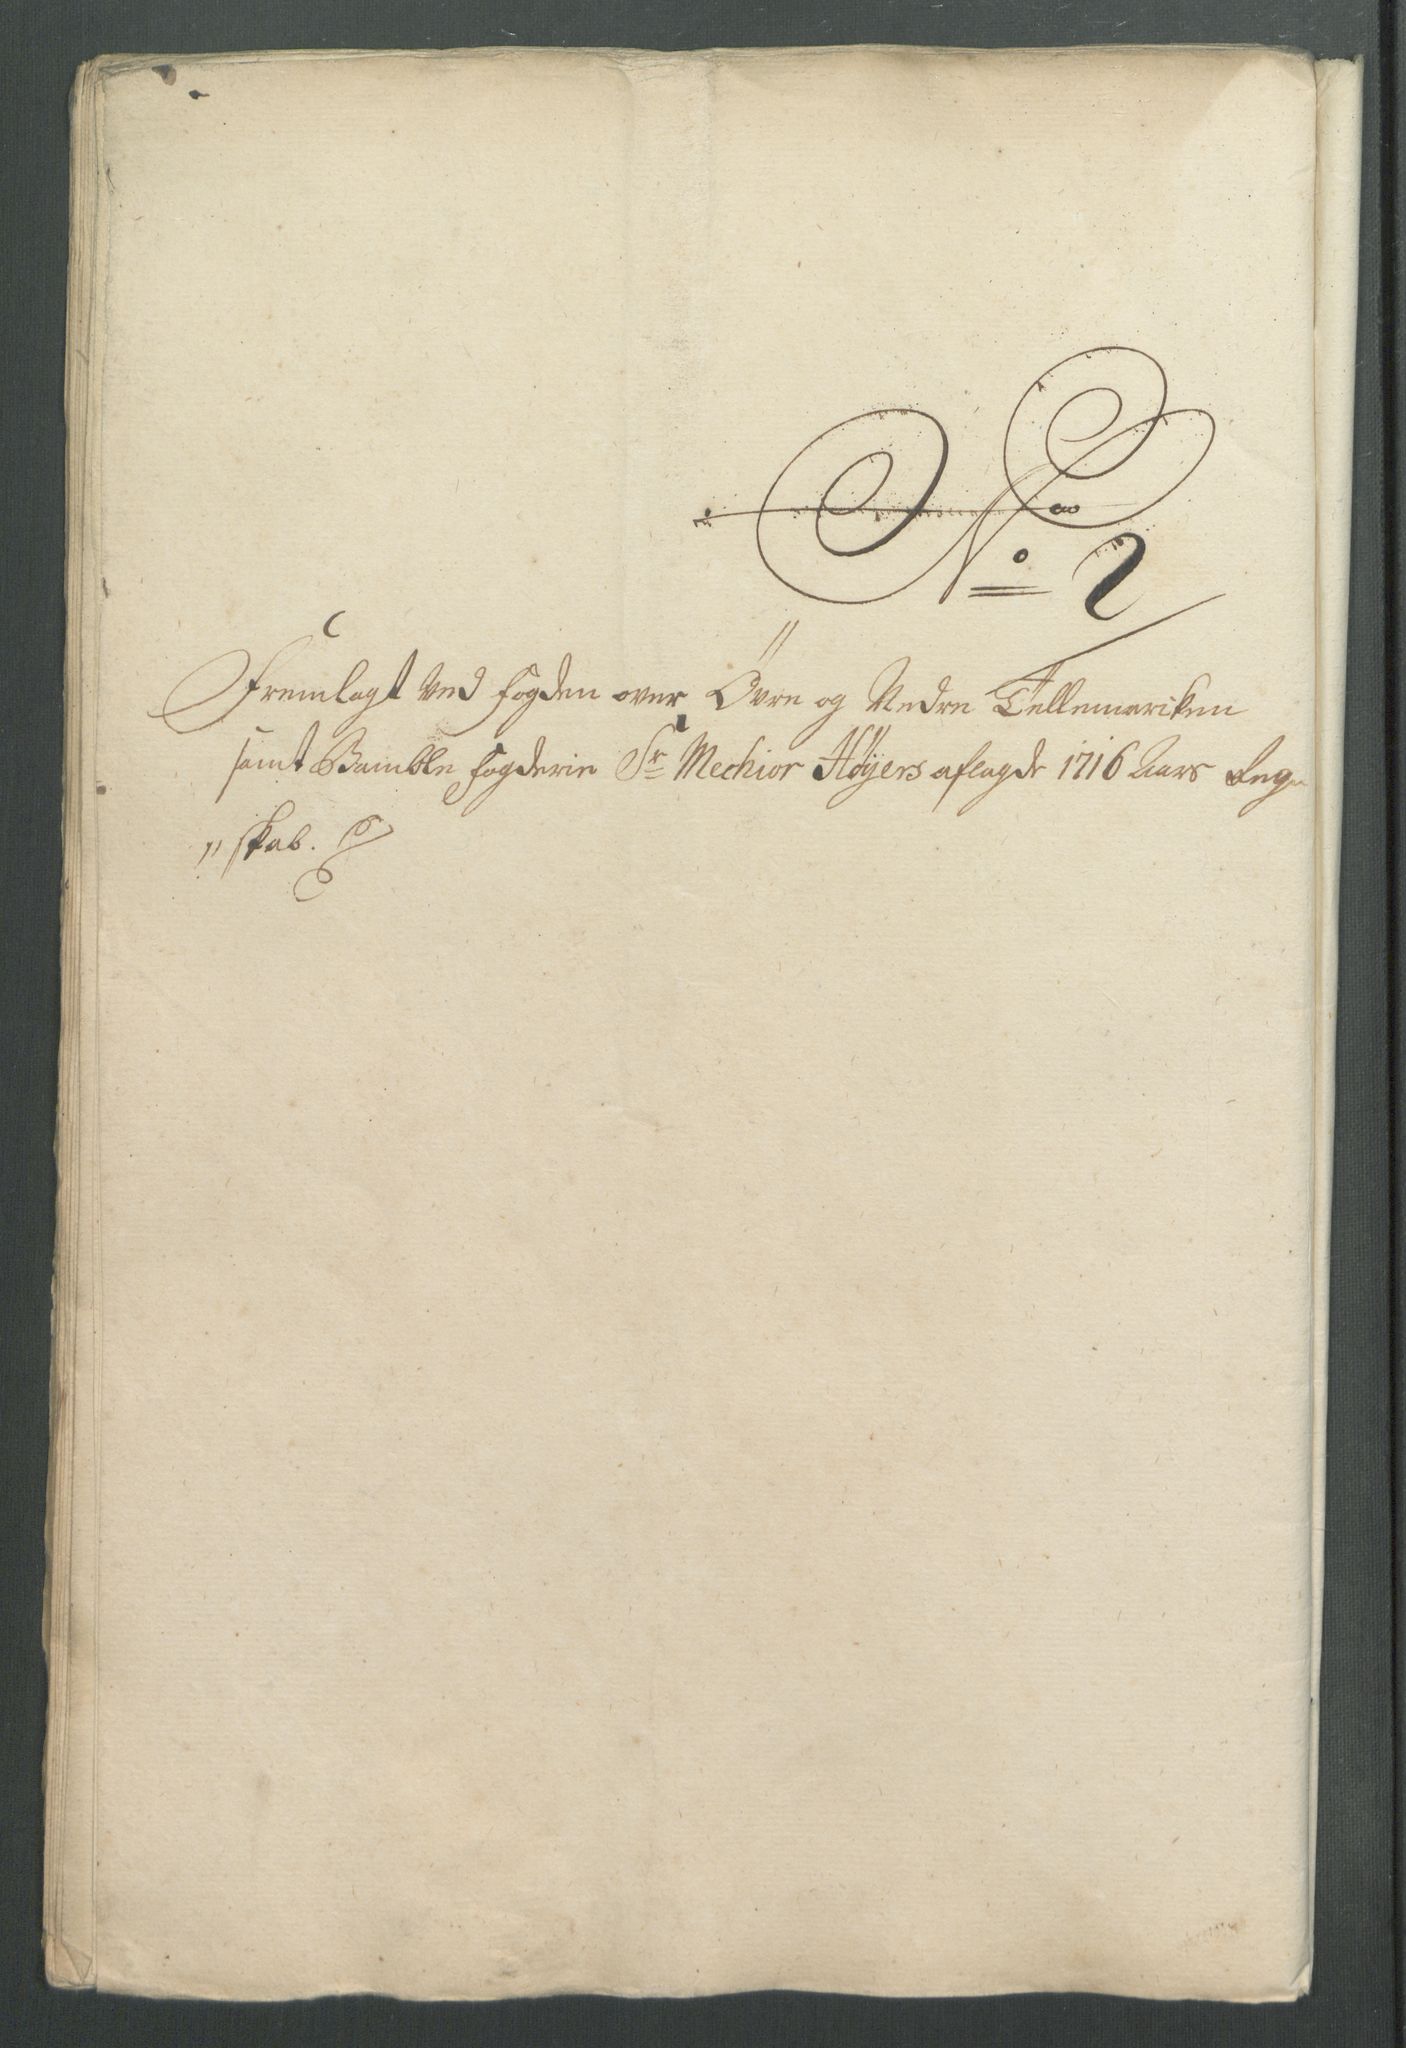 No 2
Fremlagt Ved Fogden over Övre og Nedre Tellemarcken
samt Bamble fogderie Sr Mechior Höÿers aflagde 1716 Aars Reg-
„skab.